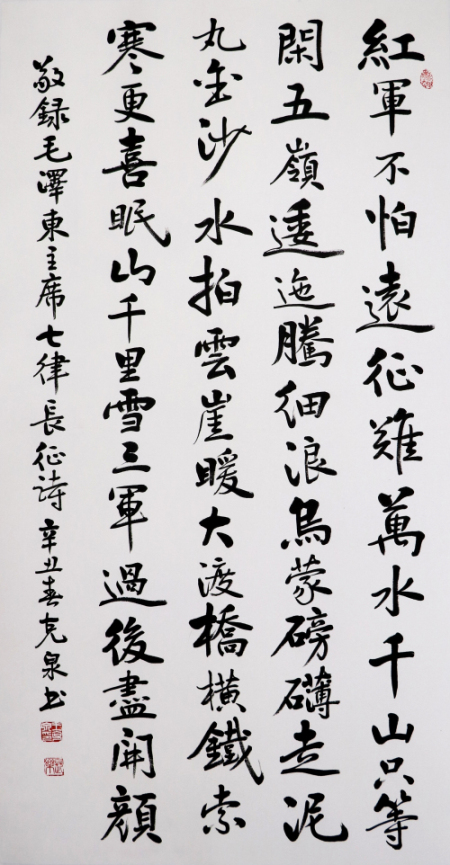 紅軍不怕遠征難萬水千山只等
閑五嶺逶迤騰細浪烏蒙磅礴走泥
丸金沙水拍雲崖暖大渡橋橫鐵索
寒更喜眠山千里雪三軍過後盡開顏
敬録毛澤東主席七律長征詩 辛丑春克泉书